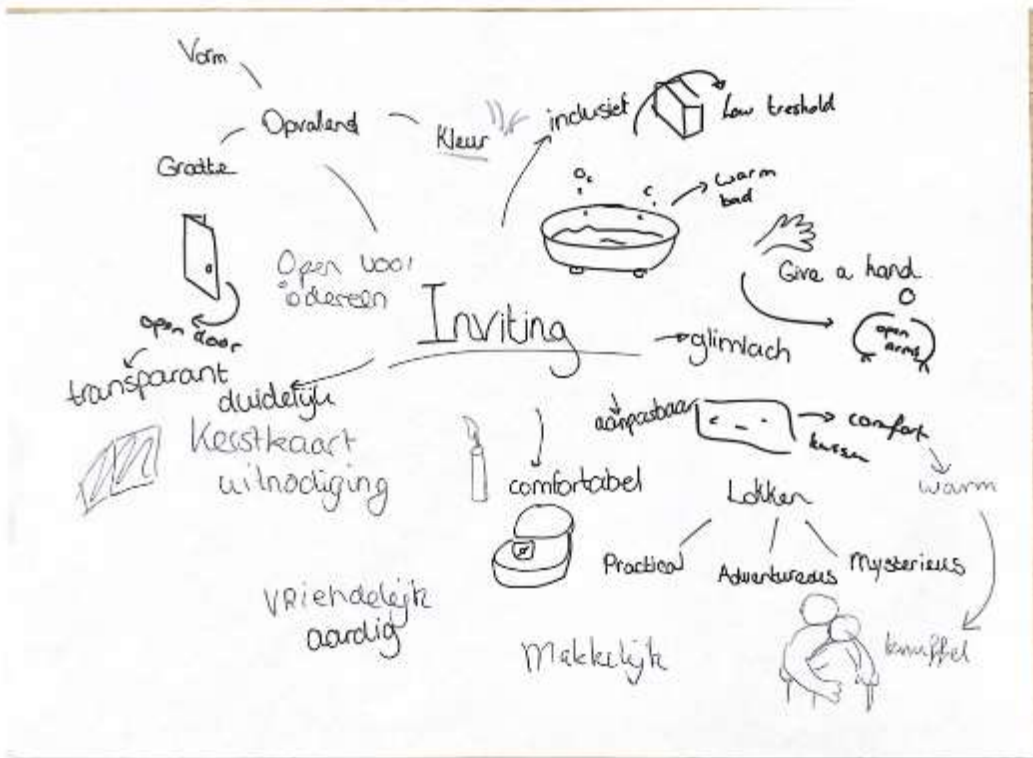 Vorm
Opvalend
Kleur
Grootte
inclusief
Low treshold
warm
bad
Give a hand
open
arms
Open voor
iedereen
Inviting
glimlach
open door
transparant
duidelijk
Kerstkaart
uitnodiging
aanpasbaar
comfort
kussen
warm
comfortabel
Lokken
Practical
Adventureous
Mysterieus
knuffel
VRiendelijk
aardig
Makkelijk